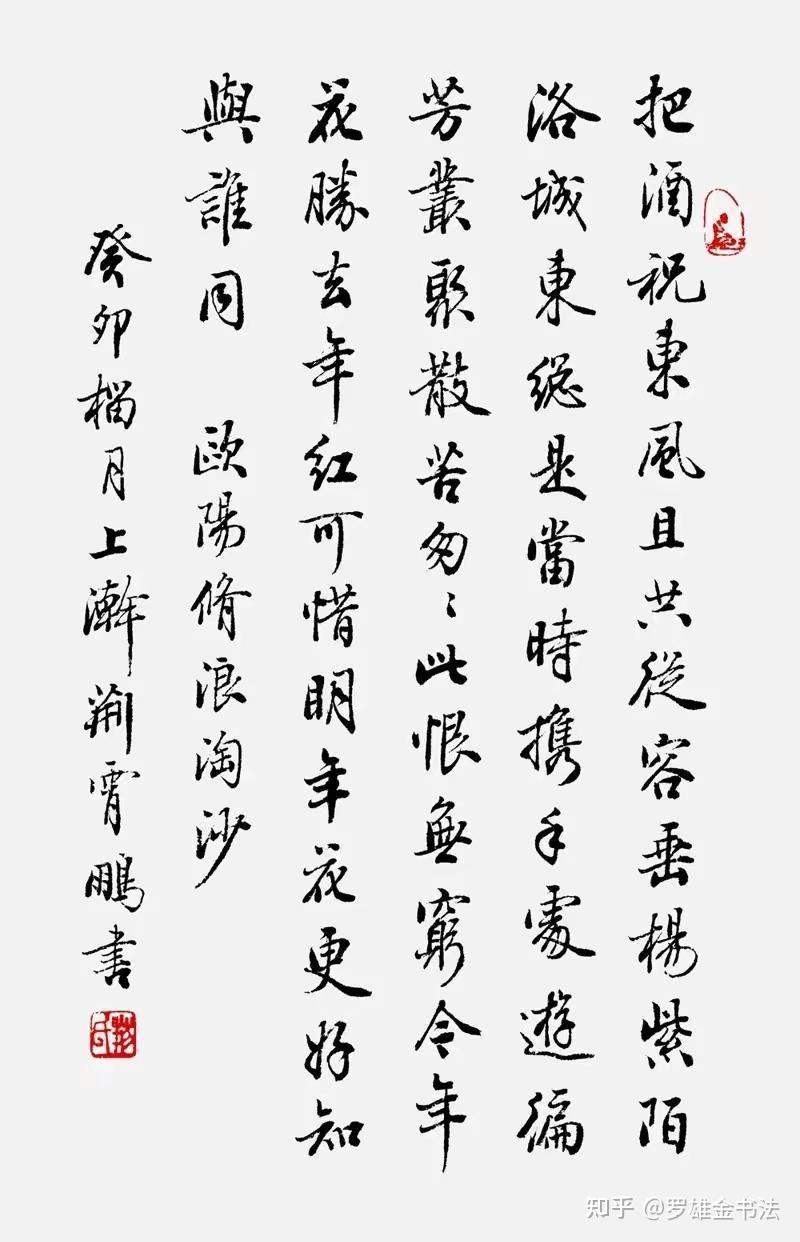 把酒祝東風且共從容垂楊紫陌
洛城東總是當時携手處遊徧
芳叢聚散苦匆〻此恨無窮今年
花勝去年紅可惜明年花更好知
與誰同 歐陽脩浪淘沙
癸卯榴月上澣荊霄鵬書
知乎 @罗雄金书法